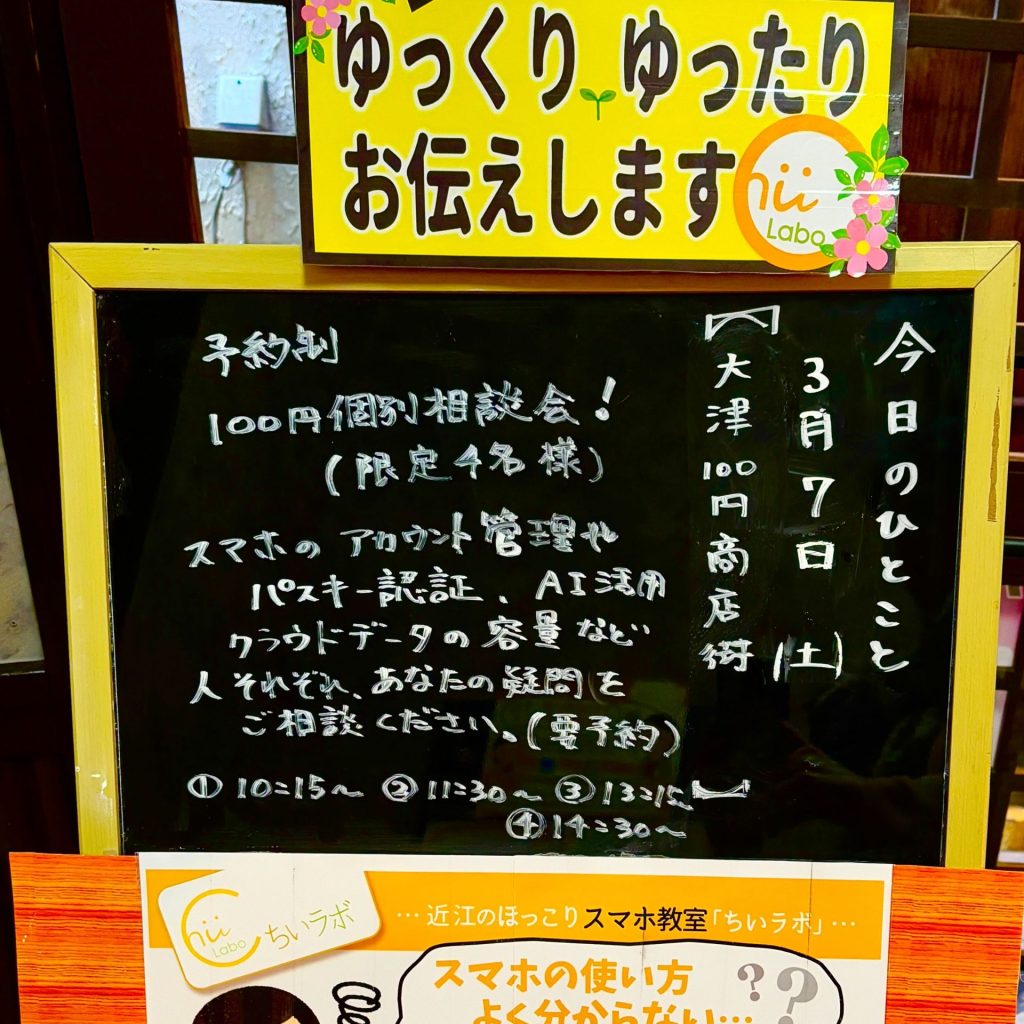 ゆっくり ゆったり
お伝えします
Chii
Labo
今日のひとこと
3月7日(土)
【大津100円商店街】
予約制
100円個別相談会！
(限定4名様)
スマホのアカウント管理や
パスキー認証、AI活用
クラウドデータの容量など
人それぞれ、あなたの疑問を
ご相談ください。(要予約)
①10:15～ ②11:30～ ③13:15～
④14:30～
Chii
Labo
ちいラボ
…近江のほっこりスマホ教室「ちいラボ」…
スマホの使い方
よく分からない…
??